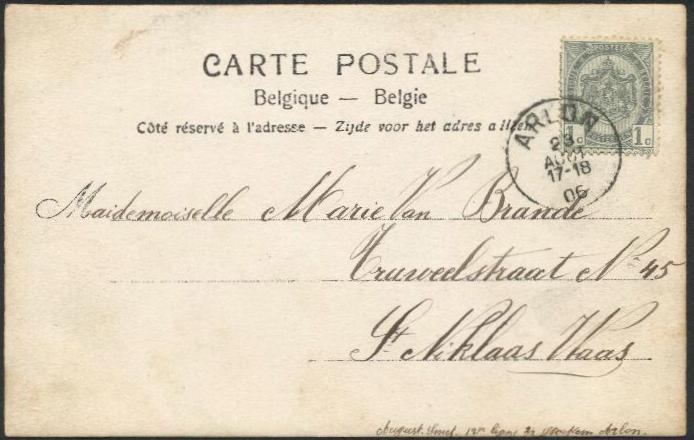 CARTE POSTALE
Belgique — Belgie
Côté réservé à l'adresse — Zijde voor het adres alleen
POSTES
1c 1c
ARLON
23
AOUT
17-18
06
Maidemoiselle Marie Van Brande
truweelstraat No 45
St Niklaas Waas
August. Smet. Arlon.